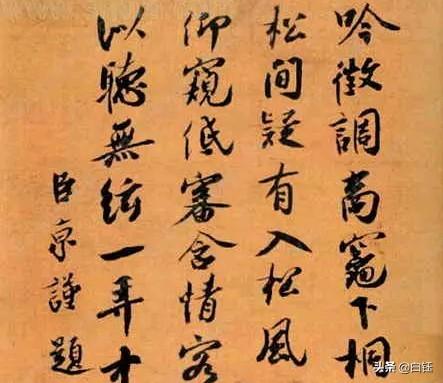 吟徵調商竈下桐
松間疑有入松風
仰窺低審含情客
以聽無絃一弄中
臣京謹題
头条 @白钰